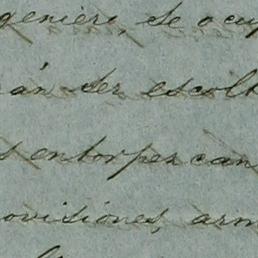 genieri, se ocup
rán ser escolt
s entorpezcan
ovisiones, arm